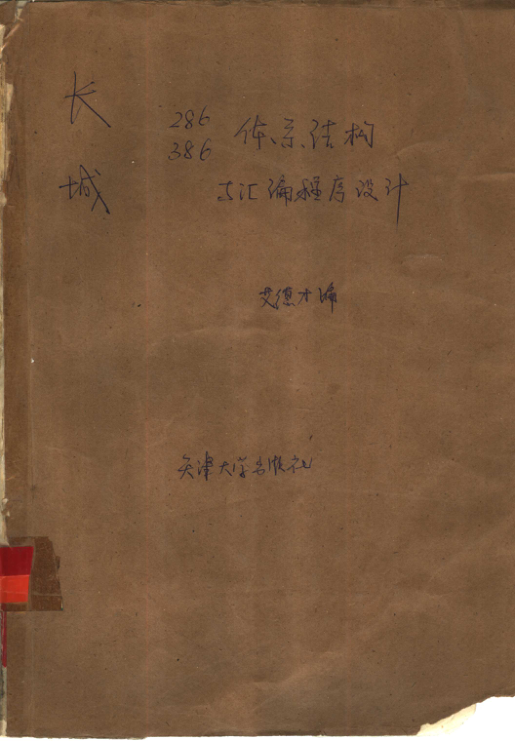 长城
286
386
体系结构
与汇编程序设计
艾德才编
天津大学出版社